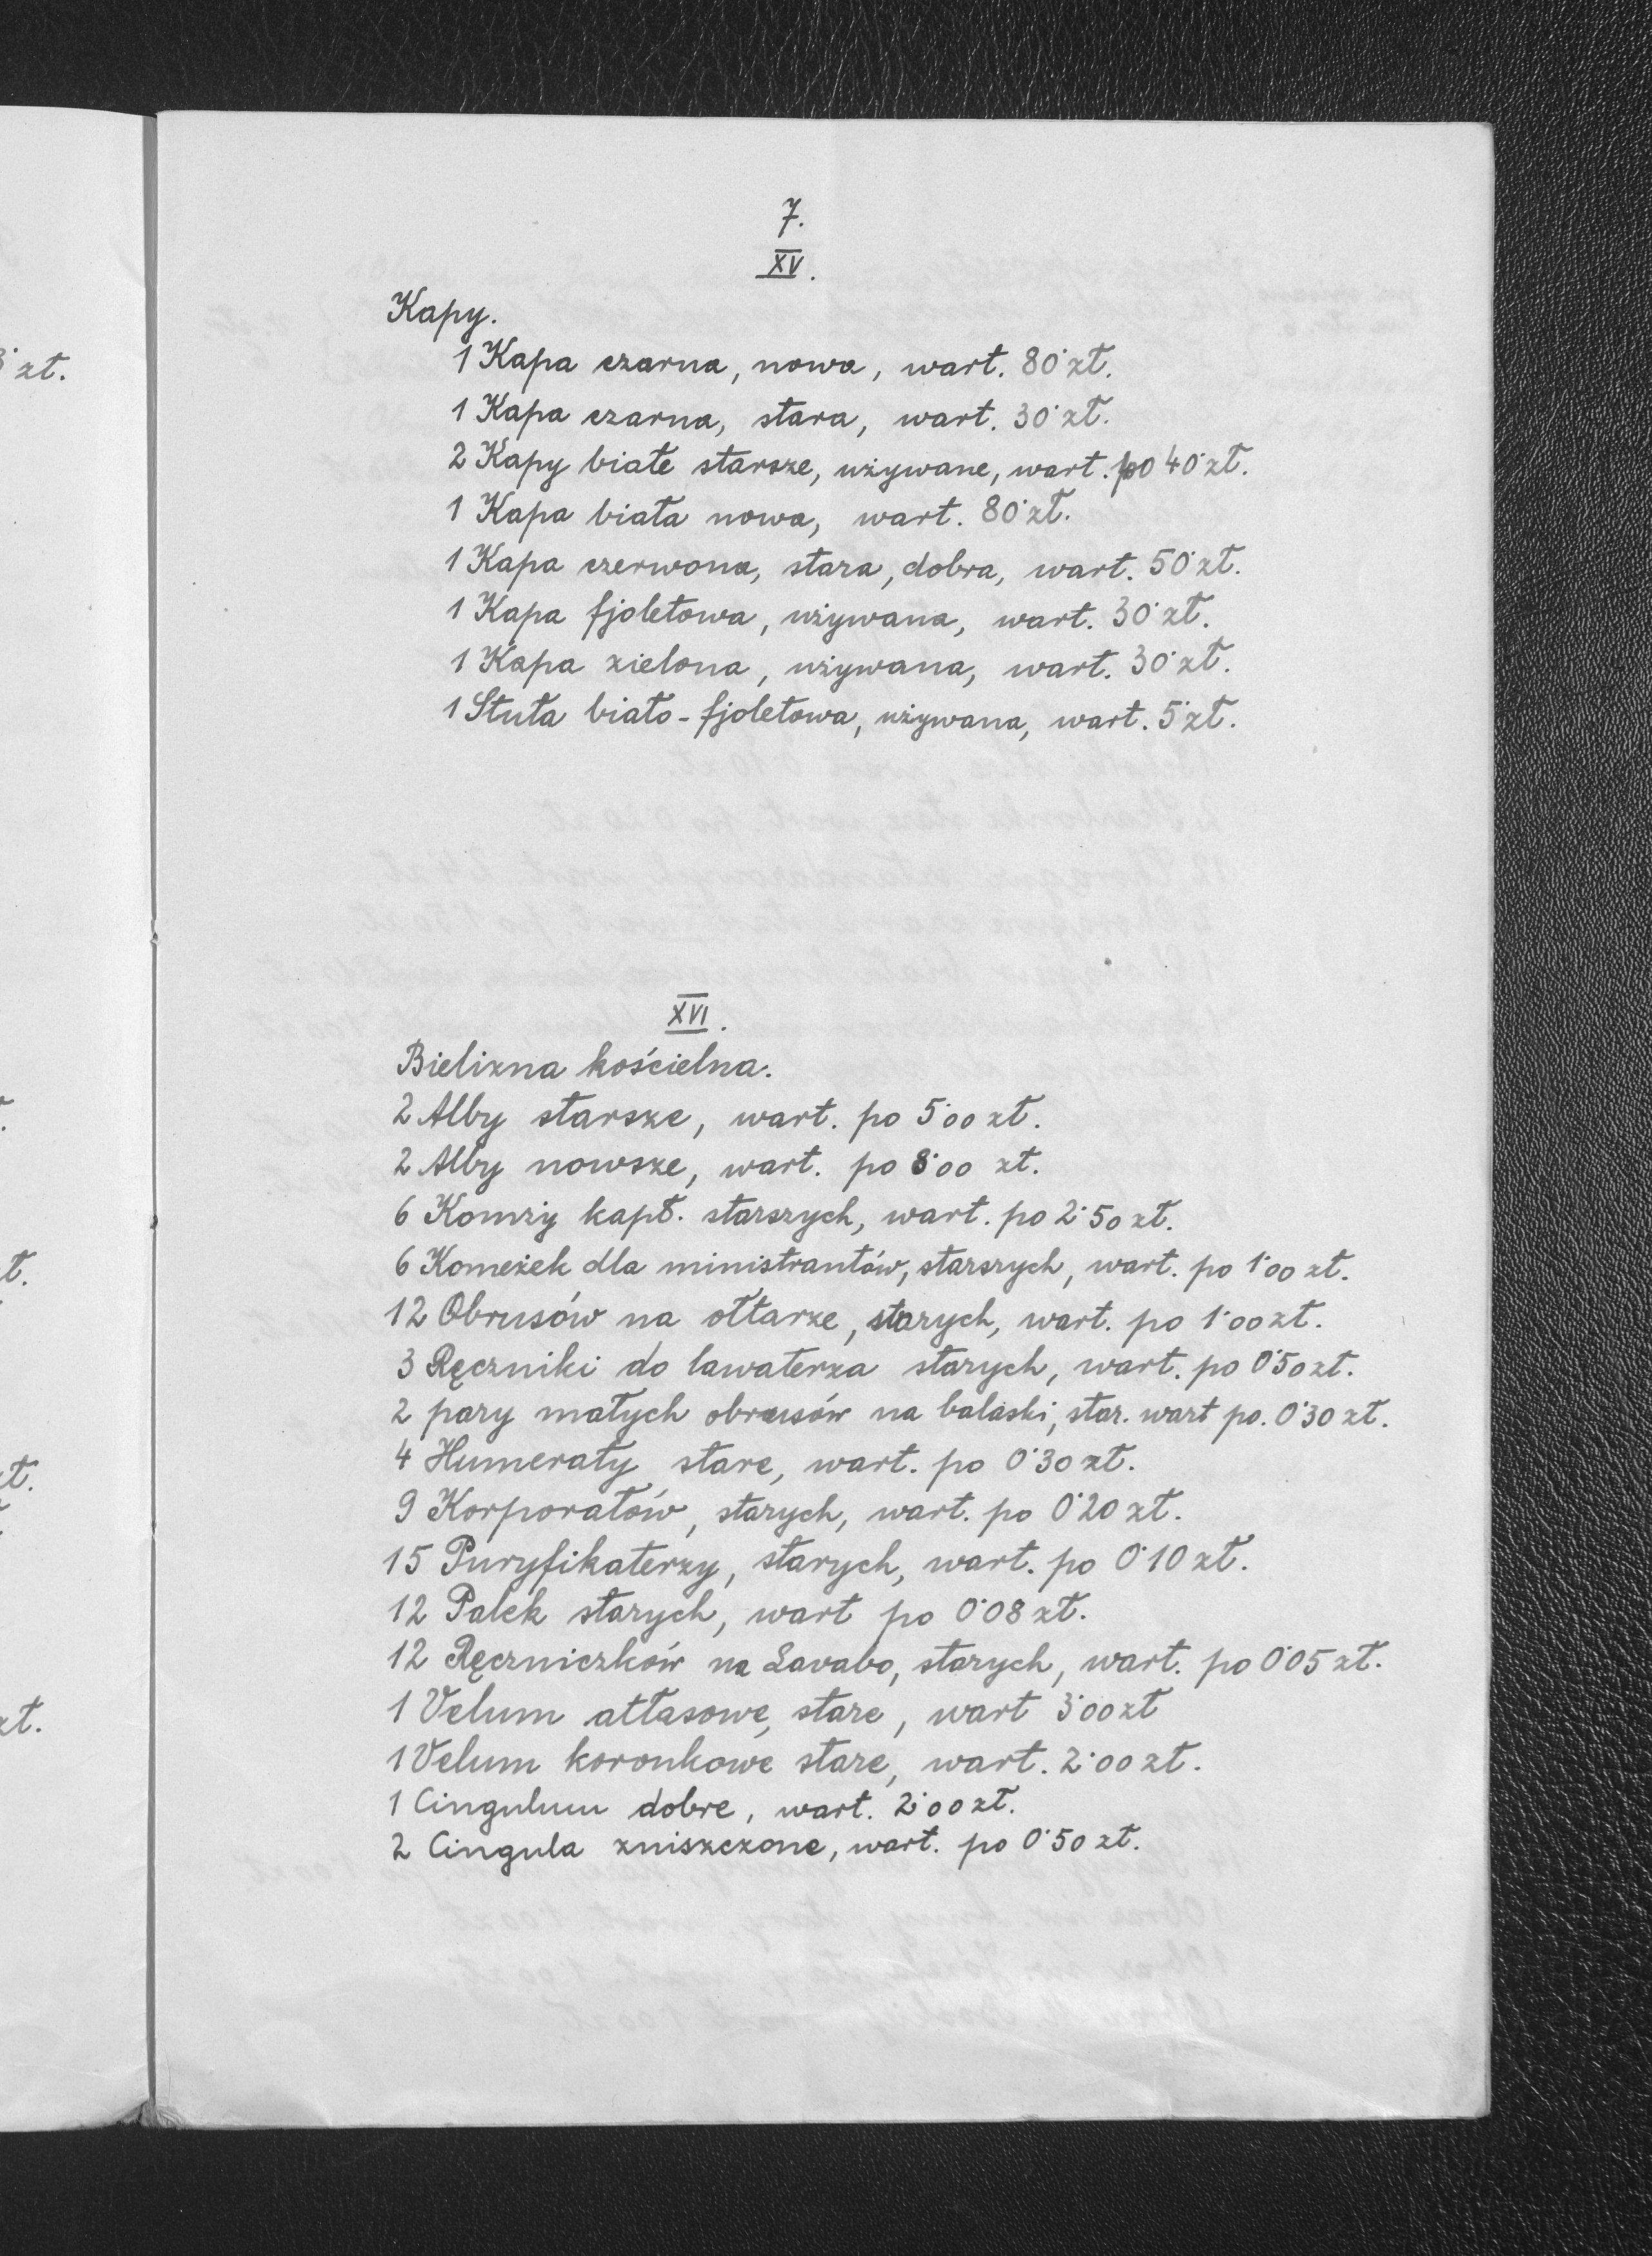 7.
XV.
Kapy.
1 Kapa czarna, nowa, wart. 80˙zł.
1 Kapa czarna, stara, wart. 30˙zł.
2 Kapy białe starsze, używane, wart. po 40˙zł.
1 Kapa biała nowa, wart. 80˙zł.
1 Kapa czerwona, stara, dobra, wart. 50˙zł.
1 Kapa fjoletowa, używana, wart. 30˙zł.
1 Kapa zielona, używana, wart. 30˙zł.
1 Stuła biało-fjoletowa, używana, wart. 5˙zł.
XVI.
Bielizna kościelna.
2 Alby starsze, wart. po 5˙00 zł.
2 Alby nowsze, wart. po 8˙00 zł.
6 Komży kapł. starszych, wart. po 2˙50 zł.
6 Komeżek dla ministrantów, starszych, wart. po 1˙00 zł.
12 Obrusów na ołtarze, starych, wart. po 1˙00 zł.
3 Ręczniki do lawaterza starych, wart. po 0˙50 zł.
2 pary małych obrusów na balaski, star. wart po. 0˙30 zł.
4 Humerały stare, wart. po 0˙30 zł.
9 Korporałów, starych, wart. po 0˙20 zł.
15 Puryfikaterzy, starych, wart. po 0˙10 zł.
12 Palek starych, wart po 0˙08 zł.
12 Ręczniczków na Lavabo, starych, wart. po 0˙05 zł.
1 Velum atłasowe, stare, wart 3˙00 zł
1 Velum koronkowe stare, wart. 2˙00 zł.
1 Cingulum dobre, wart. 2˙00 zł.
2 Cingula zniszczone, wart. po 0˙50 zł.